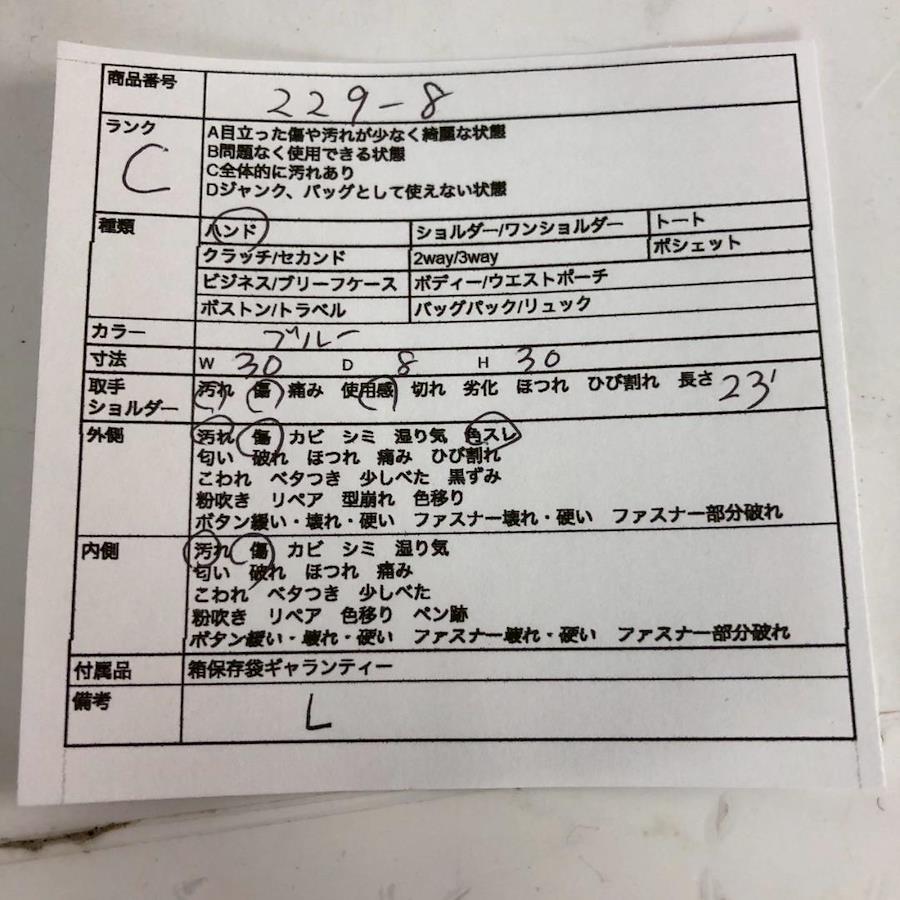 商品番号 229-8
ランク C
A目立った傷や汚れが少なく綺麗な状態
B問題なく使用できる状態
C全体的に汚れあり
Dジャンク、バッグとして使えない状態
種類 ハンド ショルダー/ワンショルダー トート
クラッチ/セカンド 2way/3way ポシェット
ビジネス/ブリーフケース ボディー/ウエストポーチ
ボストン/トラベル バッグパック/リュック
カラー ブルー
寸法 W 30 D 8 H 30
取手 汚れ 傷 痛み 使用感 切れ 劣化 ほつれ ひび割れ 長さ 23
ショルダー
外側 汚れ 傷 カビ シミ 湿り気 色スレ
匂い 破れ ほつれ 痛み ひび割れ
こわれ ベタつき 少しべた 黒ずみ
粉吹き リペア 型崩れ 色移り
ボタン緩い・壊れ・硬い ファスナー壊れ・硬い ファスナー部分破れ
内側 汚れ 傷 カビ シミ 湿り気
匂い 破れ ほつれ 痛み
こわれ ベタつき 少しべた
粉吹き リペア 色移り ペン跡
ボタン緩い・壊れ・硬い ファスナー壊れ・硬い ファスナー部分破れ
付属品 箱保存袋ギャランティー
備考 L